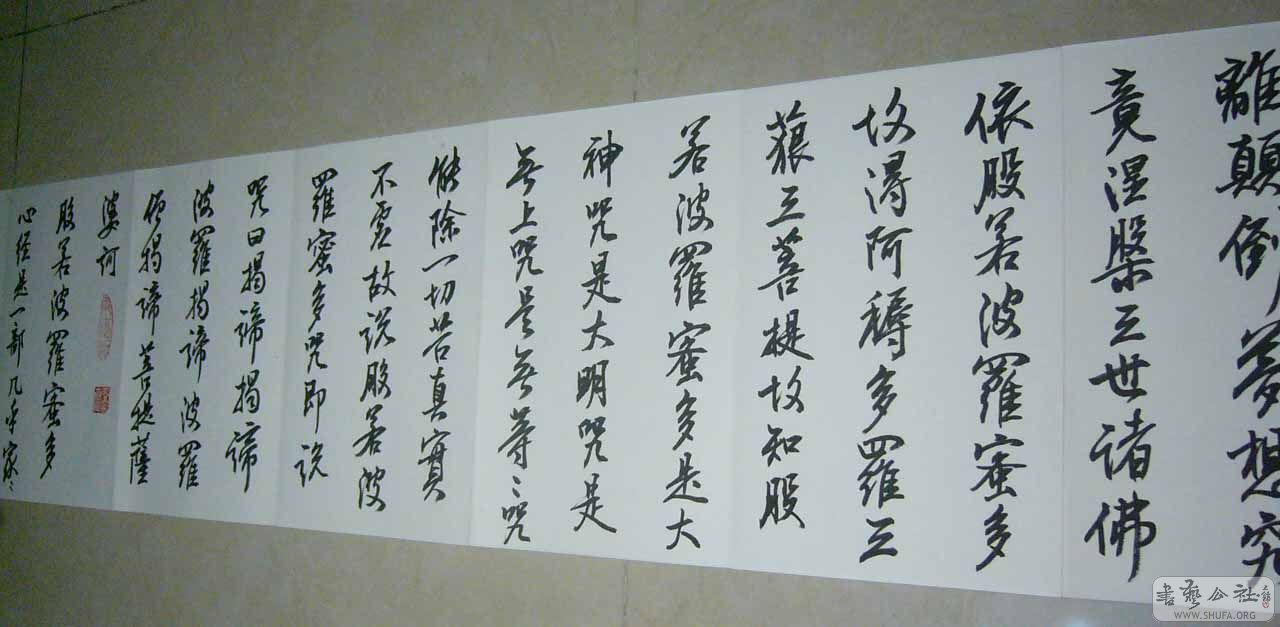 離顛倒夢想究
竟涅槃三世诸佛
依般若波羅蜜多
故得阿耨多羅三
藐三菩提故知般
若波羅蜜多是大
神咒是大明咒是
无上咒是无等〻咒
能除一切苦真實
不虚故说般若波
羅蜜多咒即说
咒曰揭谛揭谛
波羅揭谛波羅
僧揭谛菩提薩
婆诃
般若波羅蜜多
心经是一部几乎家〻
書藝公社
WWW.SHUFA.ORG